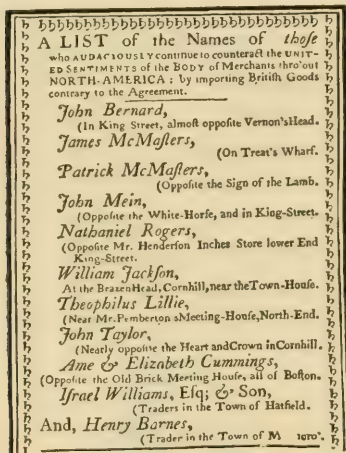 A LIST of the Names of thoſe
who AUDACIOUSLY continue to counteract the UNIT-
ED SENTIMENTS of the BODY of Merchants thro'out
NORTH-AMERICA; by importing Britiſh Goods
contrary to the Agreement.
John Bernard,
(In King Street, almoſt oppoſite Vernon'sHead.
James McMaſters,
(On Treat's Wharf.
Patrick McMaſters,
(Oppoſite the Sign of the Lamb.
John Mein,
(Oppoſite the White-Horſe, and in King-Street.
Nathaniel Rogers,
(Oppoſite Mr. Henderſon Inches Store lower End
King-Street.
William Jackſon,
At the BrazenHead, Cornhill, near theTown-Houſe.
Theophilus Lillie,
(Near Mr.Pemberton sMeeting-Houſe,North-End.
John Taylor,
(Nearly oppoſite the Heart andCrown inCornhill.
Ame & Elizabeth Cummings,
(Oppoſite the Old Brick Meeting Houſe, all of Boſton.
Iſrael Williams, Eſq; & Son,
(Traders in the Town of Hatfield.
And, Henry Barnes,
(Trader in the Town of M